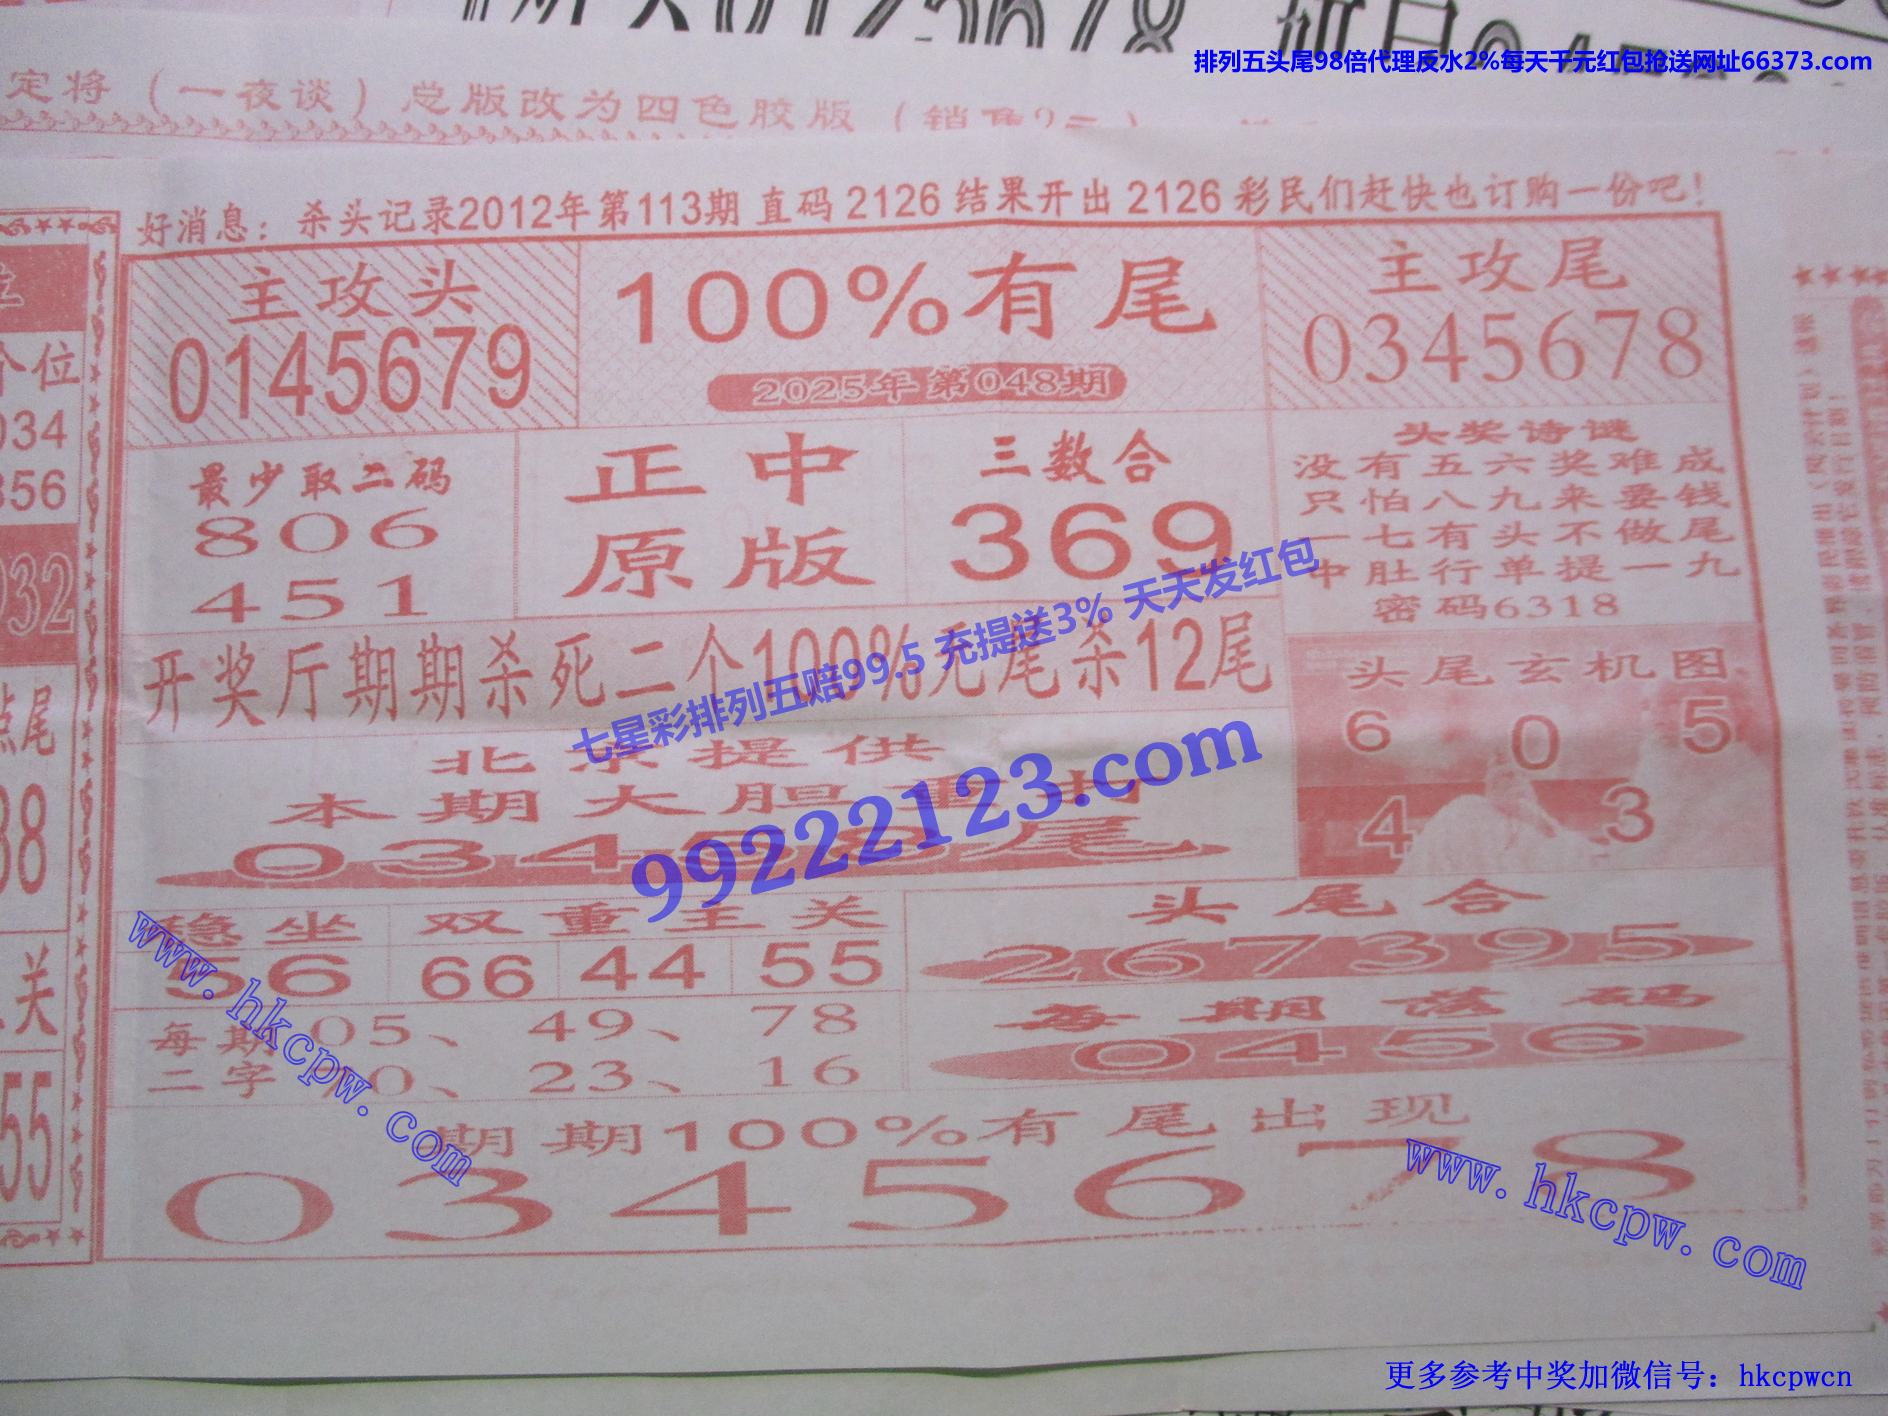 排列五头尾98倍代理反水2%每天千元红包抢送网址66373.com
定将（一夜谈）总版改为四色胶版（销售
好消息：杀头记录2012年第113期 直码 2126 结果开出 2126 彩民们赶快也订购一份吧！
主攻头
0145679
100%有尾
2025年 第048期
主攻尾
0345678
最少取二码
806
451
正中
原版
三数合
369
头奖诗谜
没有五六奖难成
只怕八九来要钱
一七有头不做尾
中肚行单提一九
密码6318
开奖厅期期杀死二个100%无尾杀12尾
七星彩排列五赔99.5 充提送3% 天天发红包
99222123.com
头尾玄机图
6 0 5
4 3
北京提供
本期大胆重封
034 尾
稳坐
56
双重主关
66 44 55
头尾合
267395
每期
二字
05、49、78
0、23、16
每期落码
0456
期期100%有尾出现
0345678
www.hkcpw.com
www.hkcpw.com
个位
034
356
932
点尾
38
关
55
更多参考中奖加微信号：hkcpwcn